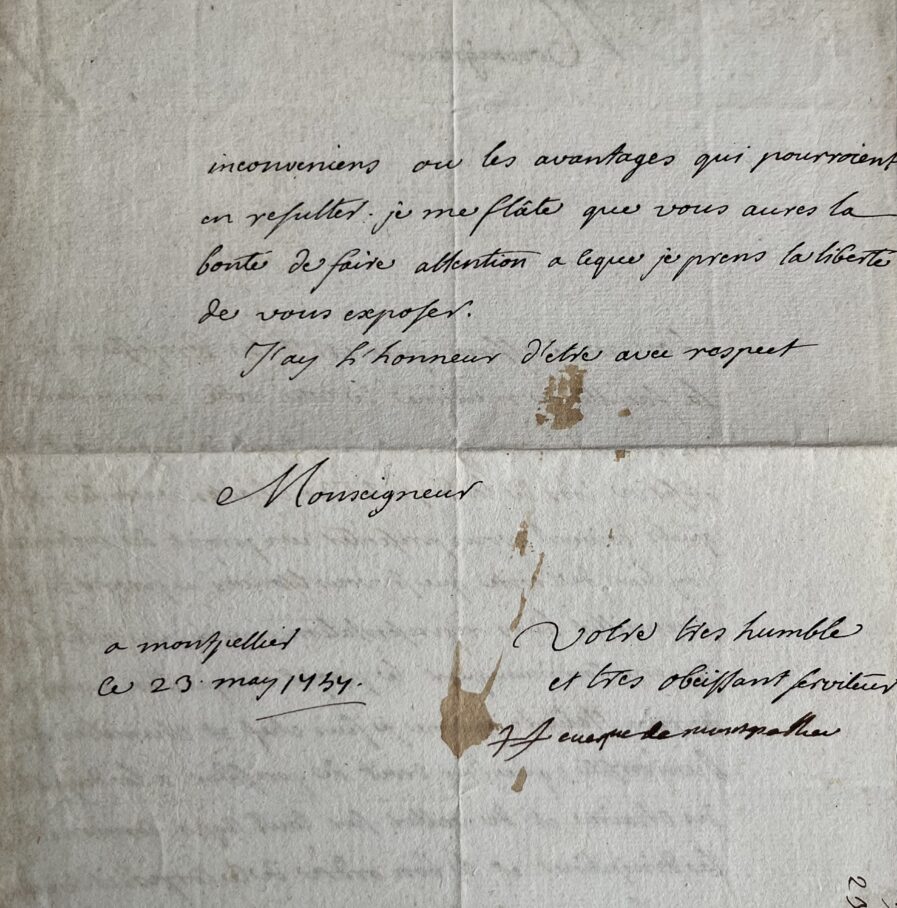 inconveniens ou les avantages qui pourroient
en resulter. je me flâte que vous aures la
bonté de faire attention a ceque je prens la liberte
de vous exposer.
J'ay l'honneur d'etre avec respect
Monseigneur
a montpellier
le 23. may 1757.
Votre tres humble
et tres obeissant serviteur
eveque de montpellier